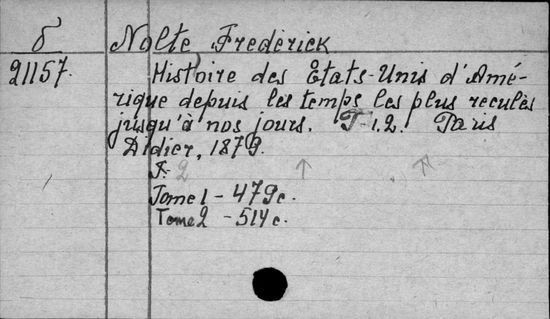 б Nolte Frederick
21157. Histoire des Etats-Unis d'Amé-
rique depuis les temps les plus reculés
jusqu'à nos jours. T-1.2. Paris
Didier, 1879.
F. 2
Tome 1 - 479c.
Tome 2 - 514c.